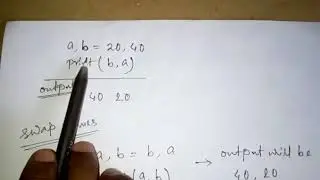 a, b = 20, 40
print (b, a)
output
40 20
swap
a, b = b, a → output will be
(a, b) 40, 20